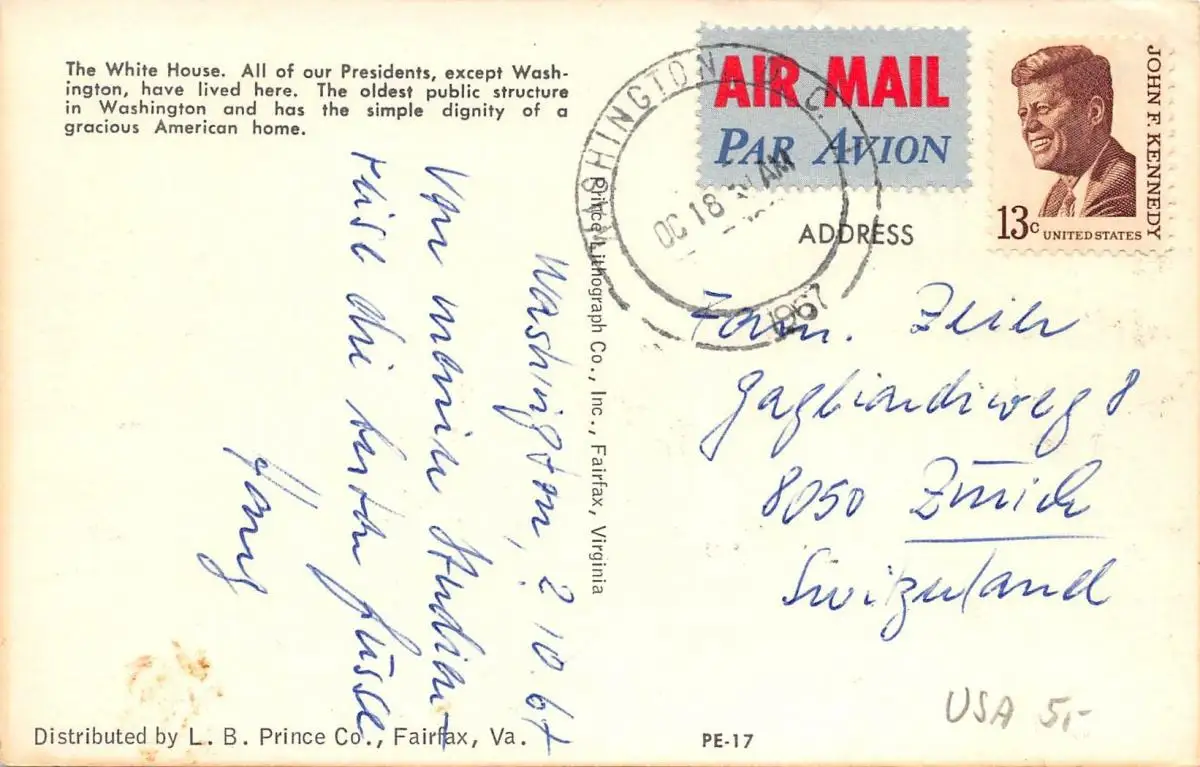 The White House. All of our Presidents, except Wash-
ington, have lived here. The oldest public structure
in Washington and has the simple dignity of a
gracious American home.
AIR MAIL
PAR AVION
WASHINGTON, D.C.
OC 18 AM
1967
JOHN F. KENNEDY
13c UNITED STATES
ADDRESS
Fam.
8
8050 Zürich
Switzerland
Prince Lithograph Co., Inc., Fairfax, Virginia
Washington, 10.67
Von meiner Studien-
reise die besten Grüsse
Distributed by L. B. Prince Co., Fairfax, Va.
PE-17
USA 5,-